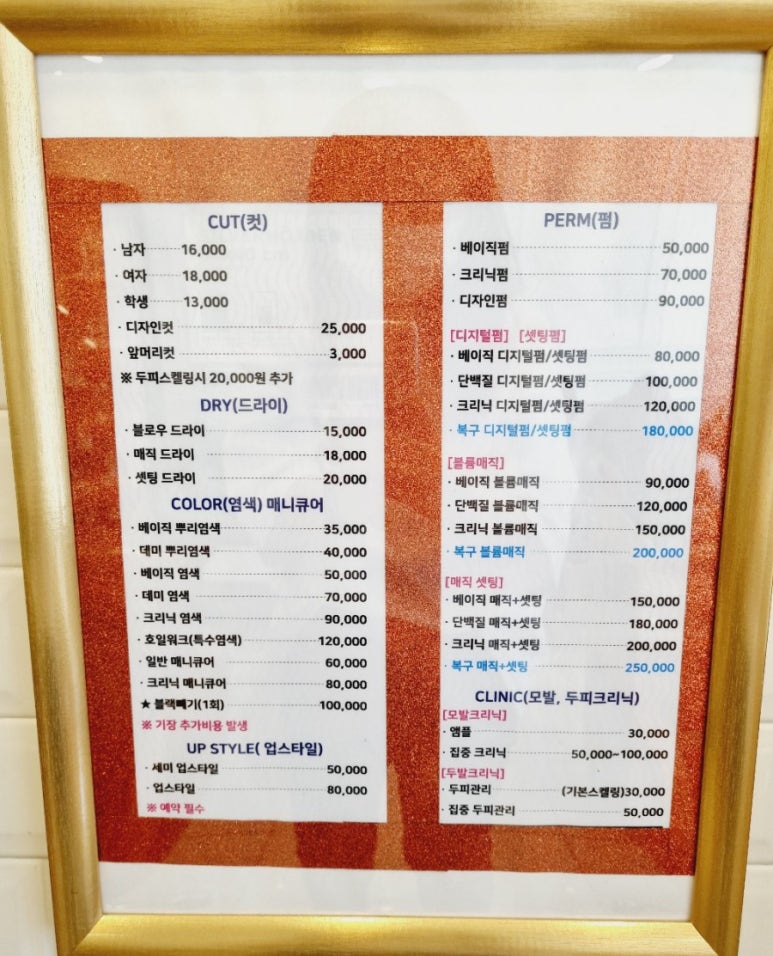 CUT(컷)
· 남자 16,000
· 여자 18,000
· 학생 13,000
· 디자인컷 25,000
· 앞머리컷 3,000
※ 두피스켈링시 20,000원 추가
DRY(드라이)
· 블로우 드라이 15,000
· 매직 드라이 18,000
· 셋팅 드라이 20,000
COLOR(염색) 매니큐어
· 베이직 뿌리염색 35,000
· 데미 뿌리염색 40,000
· 베이직 염색 50,000
· 데미 염색 70,000
· 크리닉 염색 90,000
· 호일워크(특수염색) 120,000
· 일반 매니큐어 60,000
· 크리닉 매니큐어 80,000
★ 블랙빼기(1회) 100,000
※ 기장 추가비용 발생
UP STYLE( 업스타일)
· 세미 업스타일 50,000
· 업스타일 80,000
※ 예약 필수
PERM(펌)
· 베이직펌 50,000
· 크리닉펌 70,000
· 디자인펌 90,000
[디지털펌] [셋팅펌]
· 베이직 디지털펌/셋팅펌 80,000
· 단백질 디지털펌/셋팅펌 100,000
· 크리닉 디지털펌/셋팅펌 120,000
· 복구 디지털펌/셋팅펌 180,000
[볼륨매직]
· 베이직 볼륨매직 90,000
· 단백질 볼륨매직 120,000
· 크리닉 볼륨매직 150,000
· 복구 볼륨매직 200,000
[매직 셋팅]
· 베이직 매직+셋팅 150,000
· 단백질 매직+셋팅 180,000
· 크리닉 매직+셋팅 200,000
· 복구 매직+셋팅 250,000
CLINIC(모발, 두피크리닉)
[모발크리닉]
· 앰플 30,000
· 집중 크리닉 50,000~100,000
[두발크리닉]
· 두피관리 (기본스켈링)30,000
· 집중 두피관리 50,000